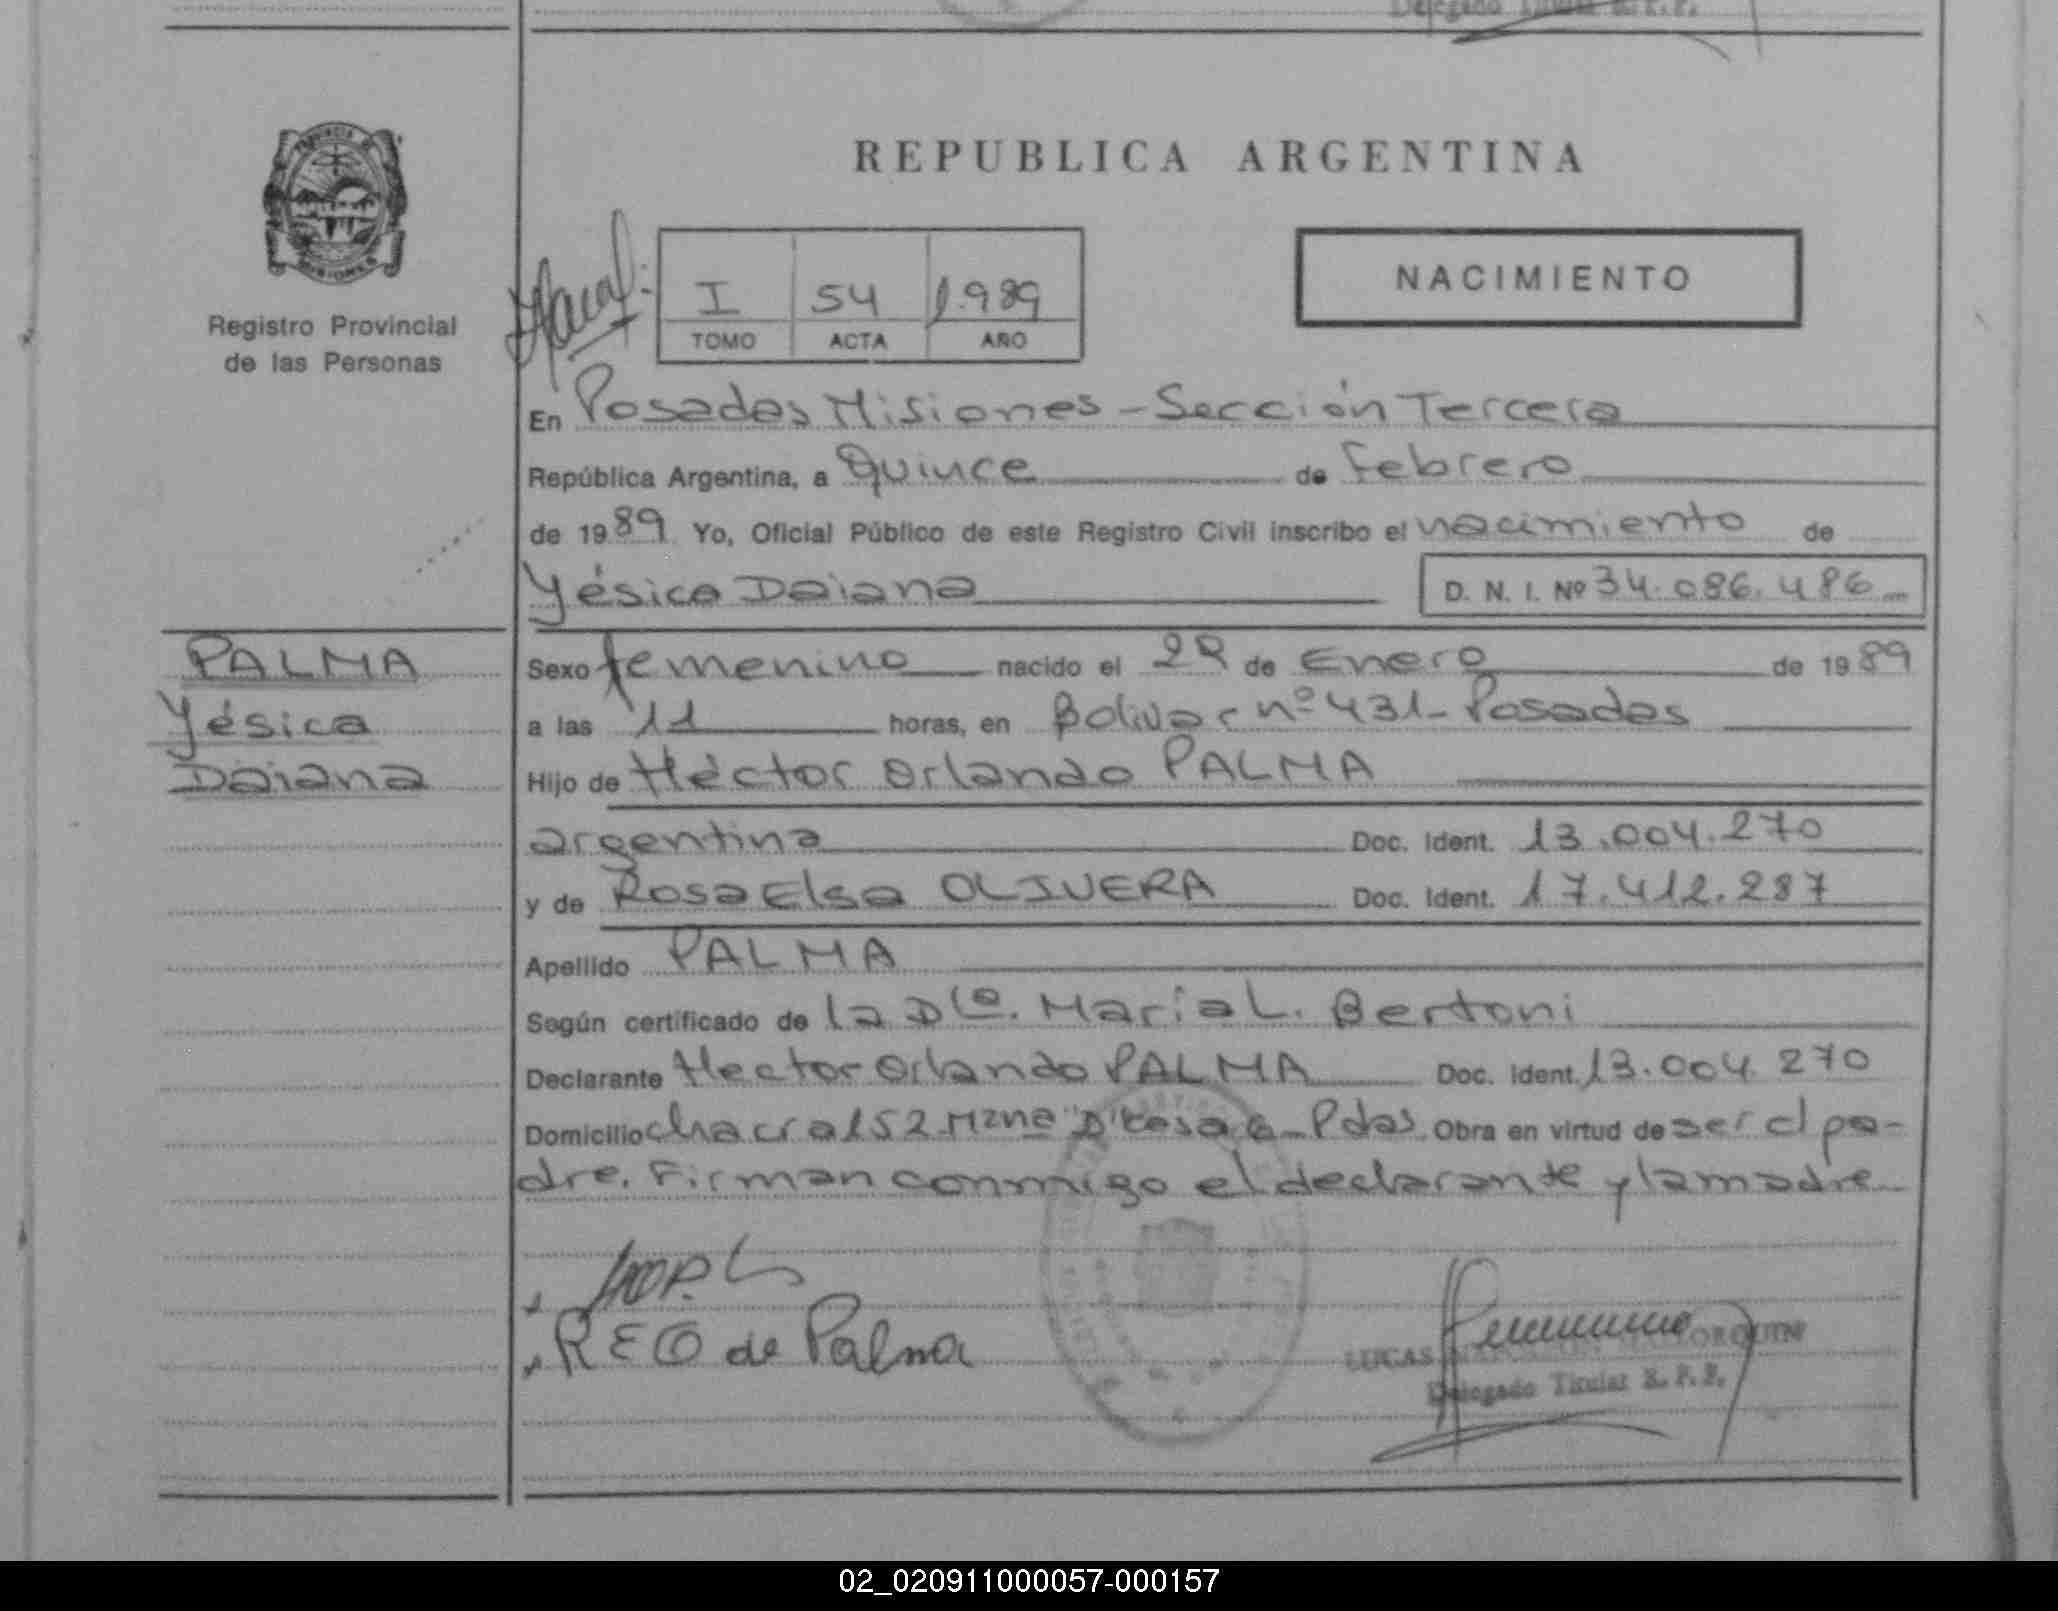 Delegado Titular R.P.P.
PROVINCIA
MISIONES
REPUBLICA ARGENTINA
Registro Provincial
de las Personas
I 54 1.989
TOMO ACTA AÑO
NACIMIENTO
En Posadas Misiones - Sección Tercera
República Argentina, a Quince de Febrero
de 1989 Yo, Oficial Público de este Registro Civil inscribo el nacimiento de
Yésica Daiana D. N. I. Nº 34.086.486
PALMA
Yésica
Daiana
Sexo femenino nacido el 28 de Enero de 1989
a las 11 horas, en Bolivar nº 431- Posadas
Hijo de Héctor Orlando PALMA
argentina Doc. Ident. 13.004.270
y de Rosa Elsa OLIVERA Doc. Ident. 17.412.287
Apellido PALMA
Según certificado de la Dra. María L. Bertoni
Declarante Hector Orlando PALMA Doc. Ident. 13.004.270
Domicilio chacra 152 Mzna "D" casa 6 - Pdas. Obra en virtud de ser el pa-
dre. Firman conmigo el declarante y la madre
R E O de Palma
LUCAS
Delegado Titular R. P. P.
02_020911000057-000157